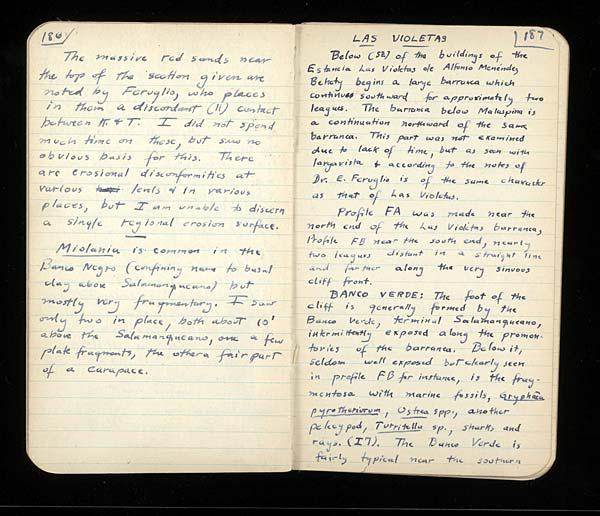 186
The massive red sands near
the top of the section given are
noted by Feruglio, who places
in them a discordant (11) contact
between K & T. I did not spend
much time on these, but saw no
obvious basis for this. There
are erosional disconformities at
various levels & in various
places, but I am unable to discern
a single regional erosion surface.
Miolania is common in the
Banco Negro (confining name to basal
clay above Salamanqueano) but
mostly very fragmentary. I saw
only two in place, both about 10'
above the Salamanqueano, one a few
plate fragments, the other a fair part
of a carapace.
187
LAS VIOLETAS
Below (SE) of the buildings of the
Estancia Las Violetas de Alfonso Menéndez
Behety begins a large barranca which
continues southward for approximately two
leagues. The barranca below Malaspina is
a continuation northward of the same
barranca. This part was not examined
due to lack of time, but as seen with
largavista & according to the notes of
Dr. E. Feruglio is of the same character
as that of Las Violetas.
Profile FA was made near the
north end of the Las Violetas barranca,
Profile FB near the south end, nearly
two leagues distant in a straight line
and farther along the very sinuous
cliff front.
BANCO VERDE: The foot of the
cliff is generally formed by the
Banco Verde, terminal Salamanqueano,
intermittently exposed along the promon-
tories of the barranca. Below it,
seldom well exposed but clearly seen
in profile FB for instance, is the frag-
mentosa with marine fossils, Gryphaea
pyrotheriorum, Ostrea spp., another
pelecypod, Turritella sp., sharks and
rays. (I7). The Banco Verde is
fairly typical near the southern